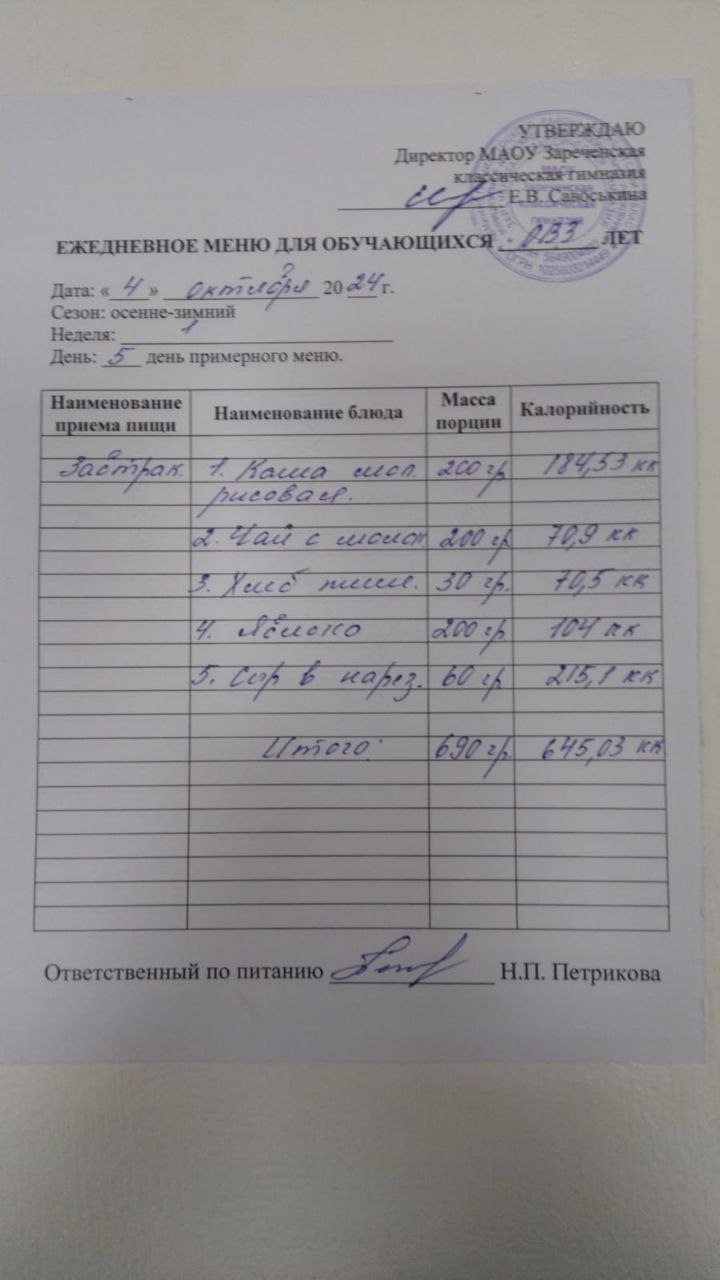 УТВЕРЖДАЮ
Директор МАОУ Зареченская
классическая гимназия
Е.В. Савоськина
ЕЖЕДНЕВНОЕ МЕНЮ ДЛЯ ОБУЧАЮЩИХСЯ ОВЗ ЛЕТ
Дата: «4» октября 2024 г.
Сезон: осенне-зимний
Неделя: 1
День: 5 день примерного меню.
Наименование приема пищи Наименование блюда Масса порции Калорийность
Завтрак. 1. Каша мол. 200 гр 184,53 кк
рисовая.
2. Чай с молок 200 гр 70,9 кк
3. Хлеб пшен. 30 гр. 70,5 кк
4. Яблоко 200 гр 104 кк
5. Сыр в нарез. 60 гр 215,1 кк
Итого: 690 гр. 645,03 кк
Ответственный по питанию Н.П. Петрикова
ОГРН 1025603214449